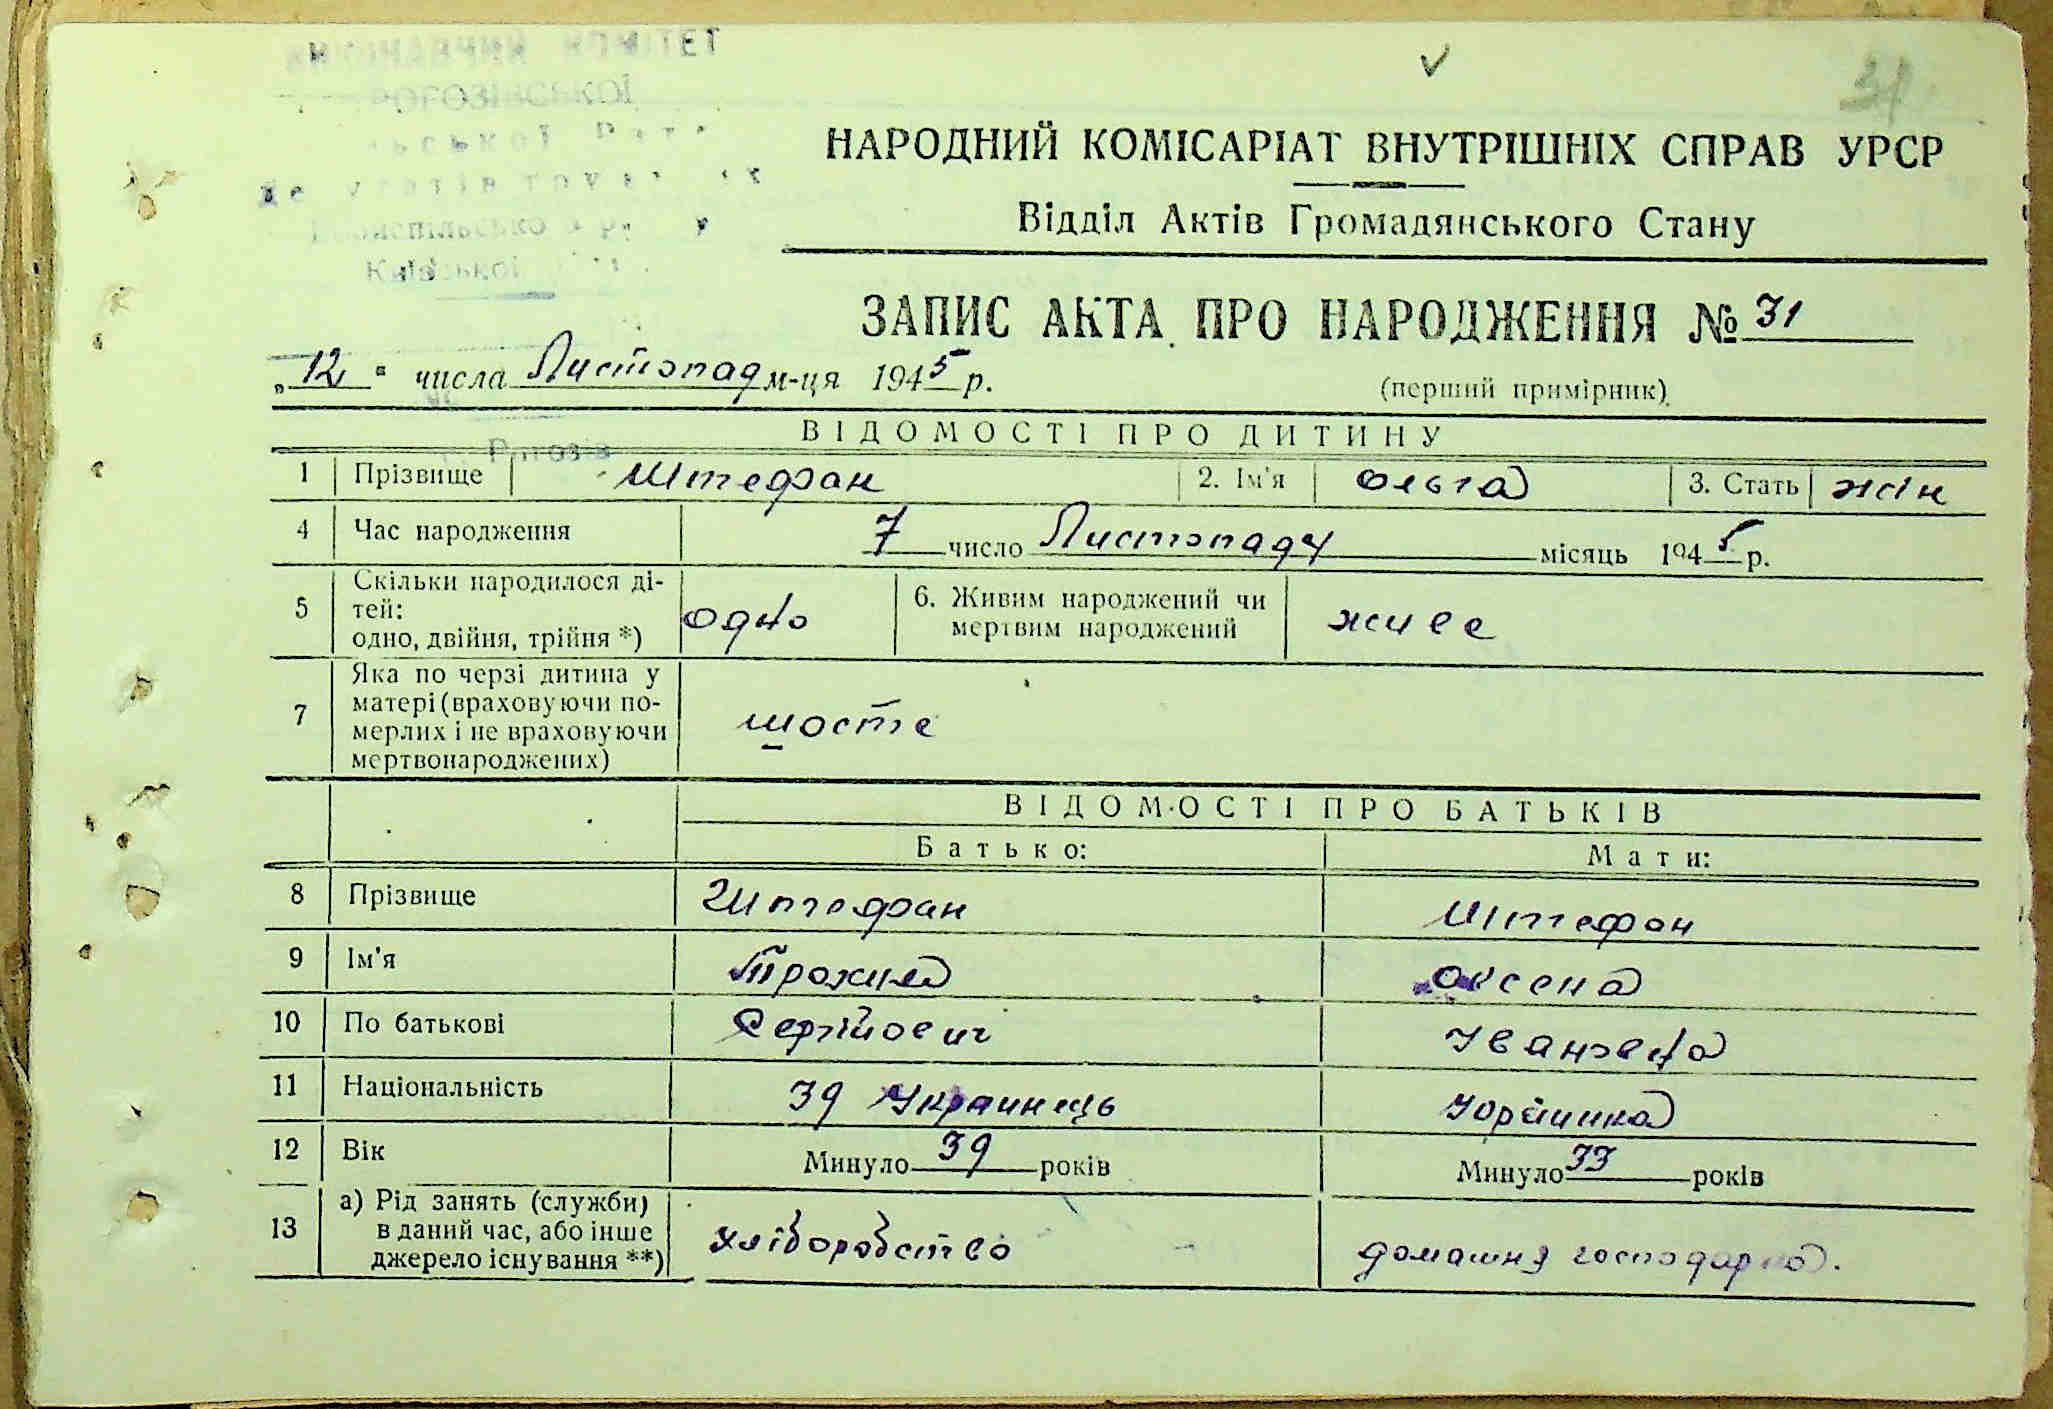 КОМІТЕТ
РОГОЗІВСЬКОЇ
Київської
31
НАРОДНИЙ КОМІСАРІАТ ВНУТРІШНІХ СПРАВ УРСР
Відділ Актів Громадянського Стану
ЗАПИС АКТА ПРО НАРОДЖЕННЯ № 31
„12" числа Листопад м-ця 1945 р.
(перший примірник)
ВІДОМОСТІ ПРО ДИТИНУ
с. Рогозів
1 Прізвище Штефан 2. Ім'я Ольга 3. Стать жін
4 Час народження 7 число Листопаду місяць 1945 р.
5 Скільки народилося ді-
тей:
одно, двійня, трійня *) одно 6. Живим народжений чи
мертвим народжений живе
7 Яка по черзі дитина у
матері (враховуючи по-
мерлих і не враховуючи
мертвонароджених) шосте
ВІДОМОСТІ ПРО БАТЬКІВ
Батько: Мати:
8 Прізвище Штефан Штефон
9 Ім'я Трохим Оксена
10 По батькові Сергійович Івановна
11 Національність 39 Украинець Украинка
12 Вік Минуло 39 років Минуло 33 років
13 а) Рід занять (служби)
в даний час, або інше
джерело існування **) хліборобство домашня господарка.